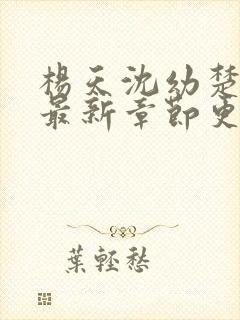 楊天沈幼楚
最新章節更
葉輕愁